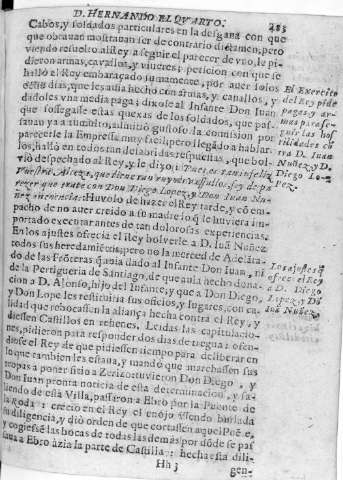 D. HERNANDO EL QVARTO.
283
Cabos, y soldados particulares en la desgana con que
que obrauan mostrauan ser de contrario dictamen, pero
viendo resuelto al Rey a seguir el parecer de vno, le pi-
dieron armas, cavallos, y viueres; peticion con que se
halló el Rey embaraçado sumamente, por auer solos
dias, que les auia hecho con armas, y cauallos, y
dadoles vna media paga; dixole al Infante Don Iuan
que sossegasse estas quexas de los soldados, que pas-
tauan ya a tumulto, admitió gustoso la comission por
parecerle la Empressa muy facil, pero llegado a hablar-
los, halló en todos tan desabridas respuestas, que bol-
vió despechado al Rey, y le dixo:
Vuestra Alteza, que tiene tan vassallos, soy de pa-
recer que trate con Don Diego Lopez, y Don Iuan Nu-
ñez
Huvolo de hazer el Rey tarde, y có em-
pacho de no auer creido a su madre lo q̃ le huviera im-
portado executar antes de tan dolorosas experiencias.
En los ajustes ofrecia el Rey bolverle a D. Iuã Nuñez
todos sus heredamientos, pero no la merced de Adelãta-
do de las Frõteras q̃ auia dado al Infante Don Iuan, ni
de la Pertigueria de Santiago, de que auia hecho dona-
cion a D. Alonso, hijo del Infante, y que a Don Diego,
y Don Lope les restituiria sus oficios, y lugares, con ca-
lidad que rebocassen la aliança hecha contra el Rey, y
diessen Castillos en rehenes. Leidas las capitulacio-
nes, pidieron para responder dos dias de tregua: ofen-
diose el Rey de que pidiessen tiempo para deliberar en
lo que tambien les estaua, y mandó que marchassen sus
tropas a poner sitio a Zerizo: tuvieron Don Diego, y
Don Iuan pronta noticia de esta determinacion, y sa-
liendo de esta Villa, passaron a Ebro por la Puente de
la Roda: creció en el Rey el enojo viendo burlada
su diligencia, y dió orden de que cortassen aquel Poẽte,
y cogiesse las bocas de todas las demás por dõde se pas-
saua a Ebro àzia la parte de Castilla: hecha esta dili-
Hh 3
gen-
El Exercito
del Rey pide
pagas, y ar
mas para se-
guir las hos
tilidades cõ
tra D. Iuan
Nuñez, y D.
Diego Lo-
pez.
Los ajustes q̃
ofrece el Rey
a D. Diego
Lopez, y Dõ
Iuã Nuñez.